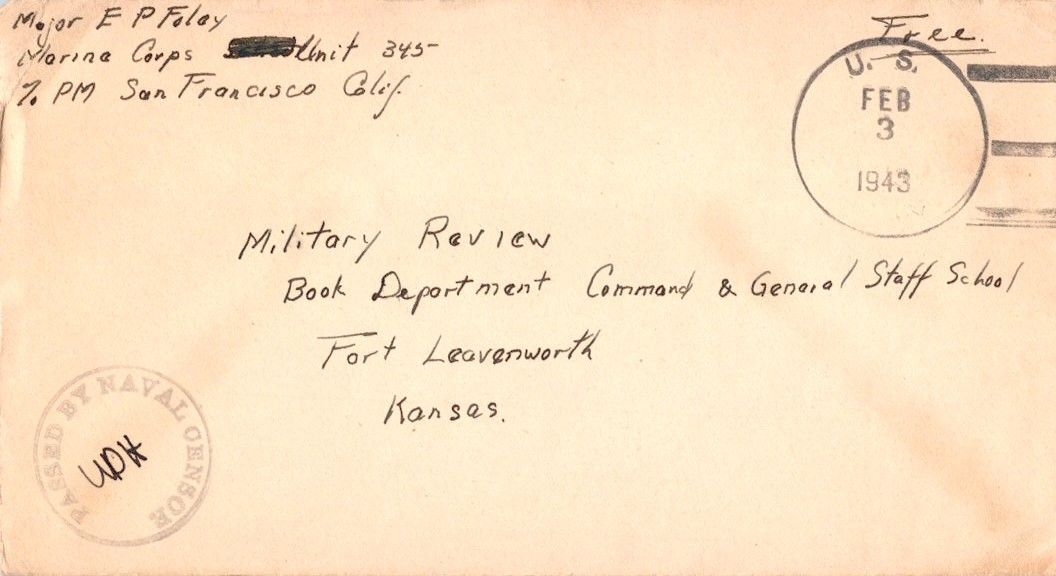 Major E P Foley
Marine Corps Unit 345
℅ PM San Francisco Calif.
Free.
U. S.
FEB
3
1943
Military Review
Book Department Command & General Staff School
Fort Leavenworth
Kansas.
PASSED BY NAVAL CENSOR